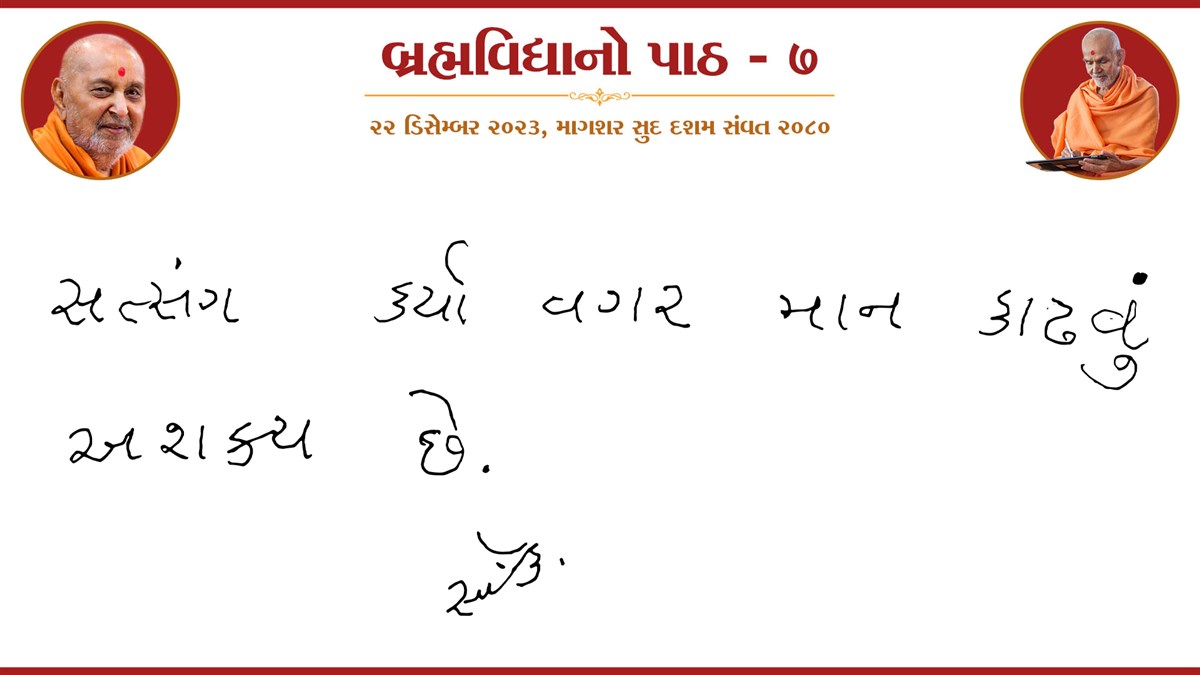 બ્રહ્મવિદ્યાનો પાઠ - ૭
૨૨ ડિસેમ્બર ૨૦૨૩, માગશર સુદ દશમ સંવત ૨૦૮૦
સત્સંગ કર્યા વગર માન કાઢવું
અશક્ય છે.